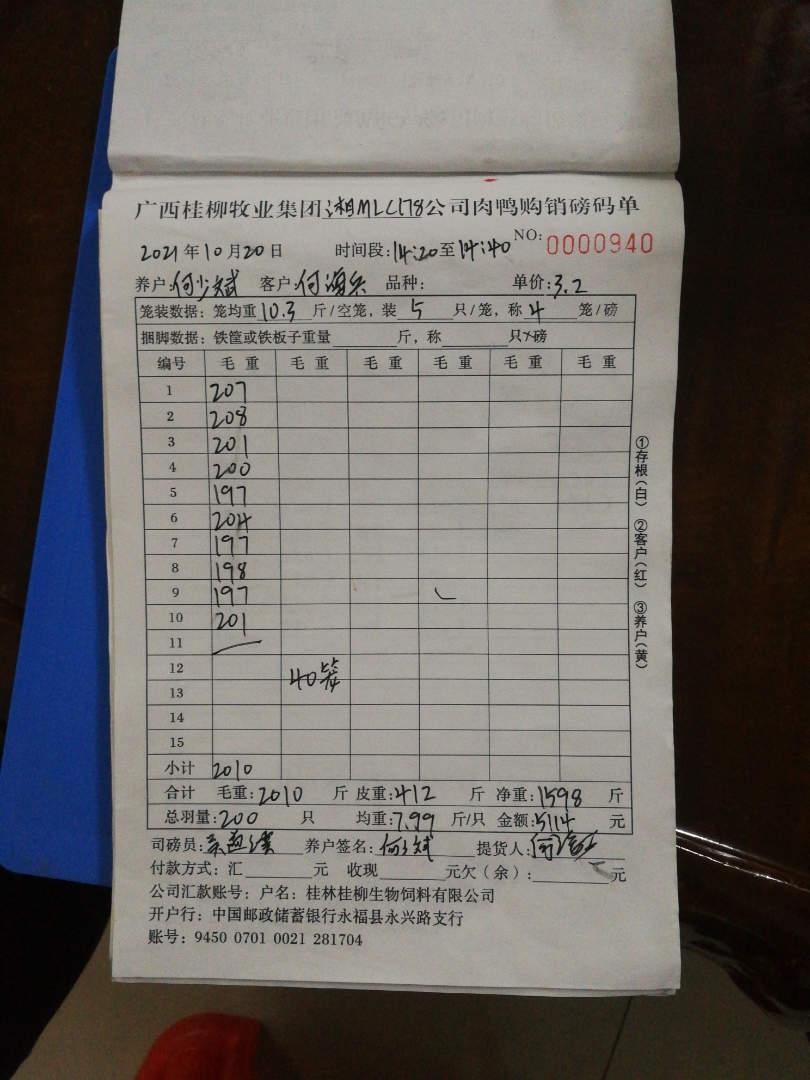 广西桂柳牧业集团湘MLC178公司肉鸭购销磅码单
NO: 0000940
2021年10月20日 时间段:14:20至14:40
养户:何少斌 客户:何海兵 品种: 单价:3.2
笼装数据:笼均重10.3斤/空笼,装5只/笼,称4笼/磅
捆脚数据:铁筐或铁板子重量 斤,称 只/磅
编号 毛重 毛重 毛重 毛重 毛重 毛重
1 207
2 208
3 201
4 200
5 197
6 204
7 197
8 198
9 197
10 201
11
12
40笼
13
14
15
小计 2010
合计 毛重:2010 斤 皮重:412 斤 净重:1598 斤
总羽量:200 只 均重:7.99 斤/只 金额:5114 元
司磅员: 养户签名:何少斌 提货人:
付款方式:汇 元 收现 元欠(余): 元
公司汇款账号:户名:桂林桂柳生物饲料有限公司
开户行:中国邮政储蓄银行永福县永兴路支行
账号:9450 0701 0021 281704
①存根(白) ②客户(红) ③养户(黄)